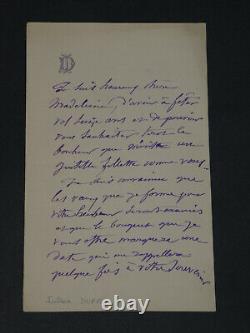 D
Je suis heureuse chère
Madeleine, d'avoir à fêter
vos seize ans et de pouvoir
vous souhaiter tout le
bonheur que mérite une
gentille fillette comme vous.
Je suis convaincue que
les vœux que je forme pour
votre bonheur seront exaucés
et que le bouquet que je
vous offre marquera une
date qui me rappellera
quelque fois à votre souvenir